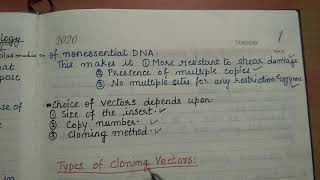 ology
2020
TUESDAY
1
of nonessential DNA.
that
This makes it ① More resistant to shear damage
pose
② Presence of multiple copies
③ No multiple sites for any restriction enzyme
se of
• Choice of vectors depends upon
① Size of the insert.
② Copy number.
③ Cloning method.
Types of Cloning Vectors: